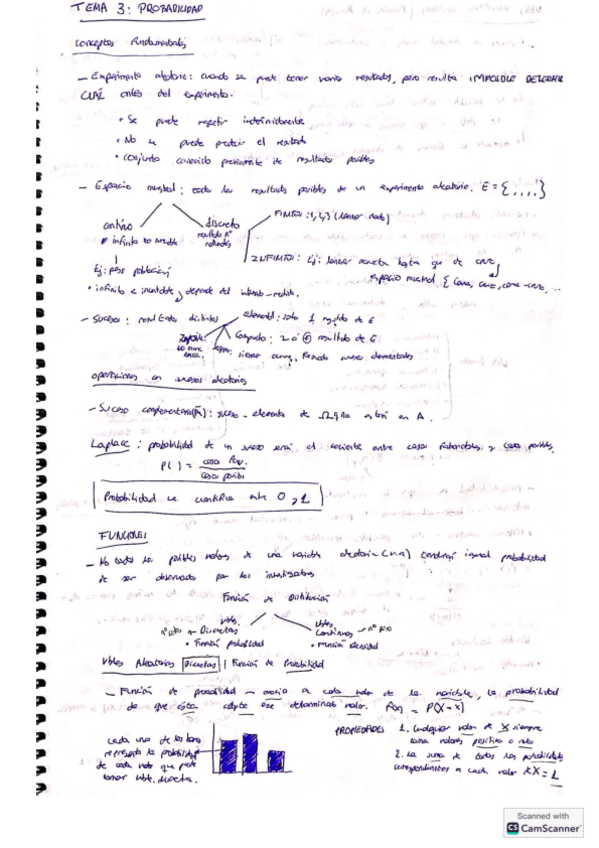 TEMA 3: PROBABILIDAD
Conceptos Fundamentales
- Experimento aleatorio: cuando se puede tener varios resultados, pero resulta IMPOSIBLE DETERMINAR
CUÁL antes del experimento.
• Se puede repetir indefinidamente
• No se puede predecir el resultado
• Conjunto conocido previamente de resultados posibles
- Espacio muestral: todos los resultados posibles de un experimento aleatorio. E = {....}
continuo
discreto
FINITO: 1, 2, 3 (lanzar dado)
# infinito no
resultado nº
INFINITO: Ej: lanzar moneda hasta que de cruz,
Ej: peso población
espacio muestral, {cara, cruz, cara-cruz, ...
• infinito e incontable, depende del
- Sucesos: resultados distintos
elemental: solo 1 resultado de E
Compuesto: 2 o ⊕ resultados de E
Seguro: siempre ocurre, sucesos elementales
operaciones con sucesos aleatorios
- Suceso complementario(Ā): suceso - elementos de Ω que no están en A.
Laplace: probabilidad de un suceso será el cociente entre casos favorables y casos posibles,
P( ) = casos fav.
casos posibles
Probabilidad se cuantifica entre 0 y 1
FUNCIONES
- No todos los posibles valores de una variable aleatoria (v.a) tendrán igual probabilidad
de ser observados por los investigadores
Función de Distribución
vbles.
Discretas
• Función probabilidad
vbles
Continuas
• Función densidad
Vbles Aleatorias Discretas | Función de Probabilidad
- Función de probabilidad - asocia a cada valor de la variable, la probabilidad
de que ésta adopte ese determinado valor. = P(X = x)
cada una de las barras
representa la probabilidad
de cada valor que puede
tomar vble. discreta.
PROPIEDADES
1. Cualquier valor de X siempre
toma valores positivos o nulos
2. La suma de todas las probabilidades
correspondientes a cada valor X = 1
Scanned with
CS CamScanner